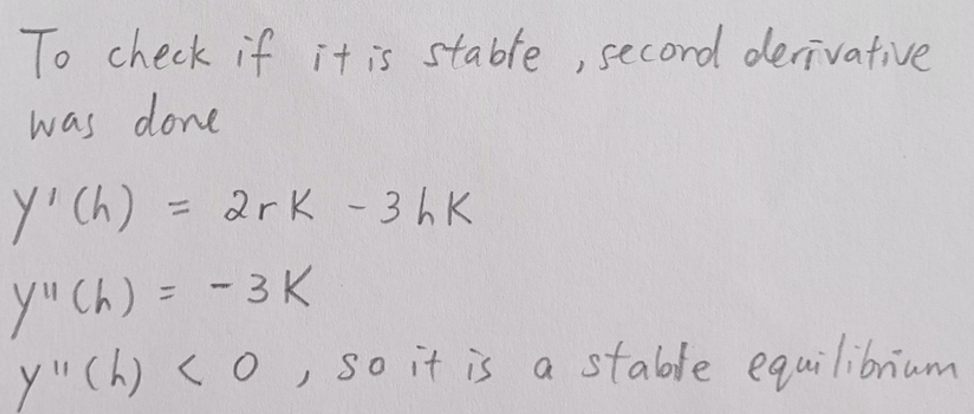 To check if it is stable, second derivative
was done
y'(h) = 2rK - 3hK
y"(h) = -3K
y"(h) < 0, so it is a stable equilibrium